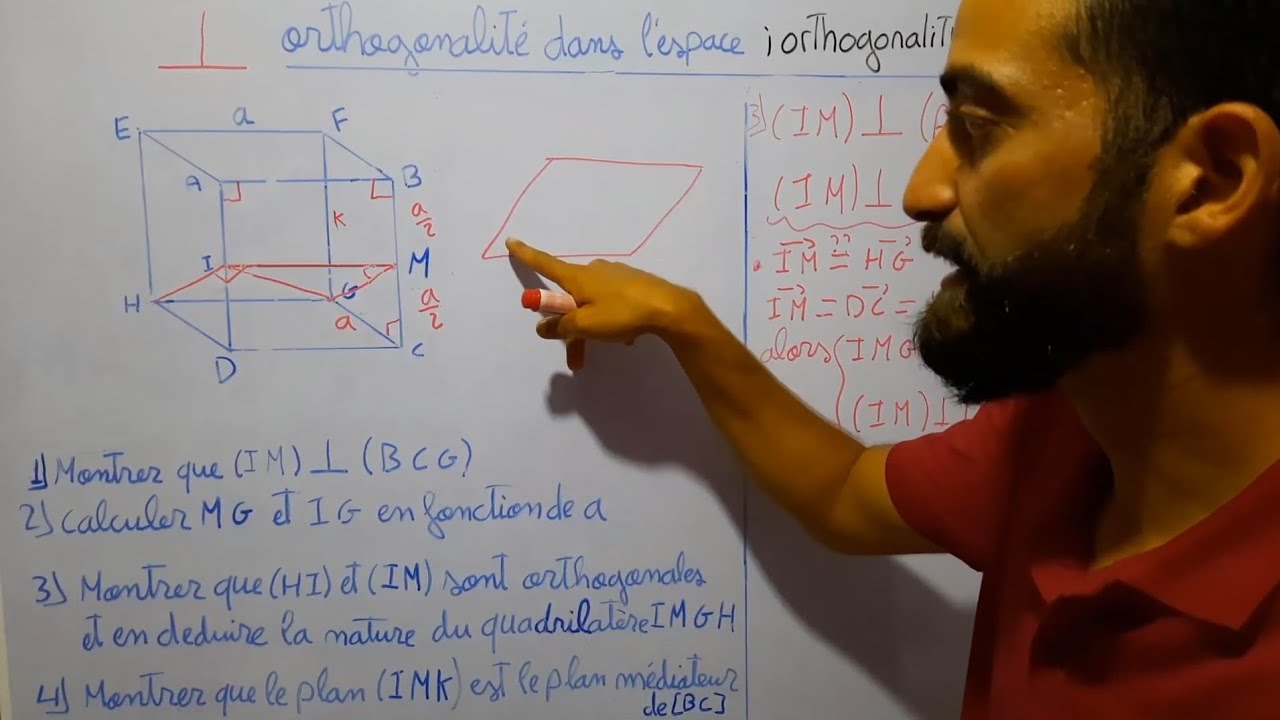 ⊥ orthogonalité dans l'espace ; orthogonalit
E a F
A B
K a/2
I M
H G a/2
a
D C
1) Montrer que (IM) ⊥ (BCG)
2) Calculer MG et IG en fonction de a
3) Montrer que (HI) et (IM) sont orthogonales
et en deduire la nature du quadrilatère IMGH
4) Montrer que le plan (IMK) est le plan médiateur
de [BC]
3) (IM) ⊥ (
(IM) ⊥
• IM⃗ ≟ HG⃗
IM⃗ = DC⃗ =
alors IMG
(IM) ⊥